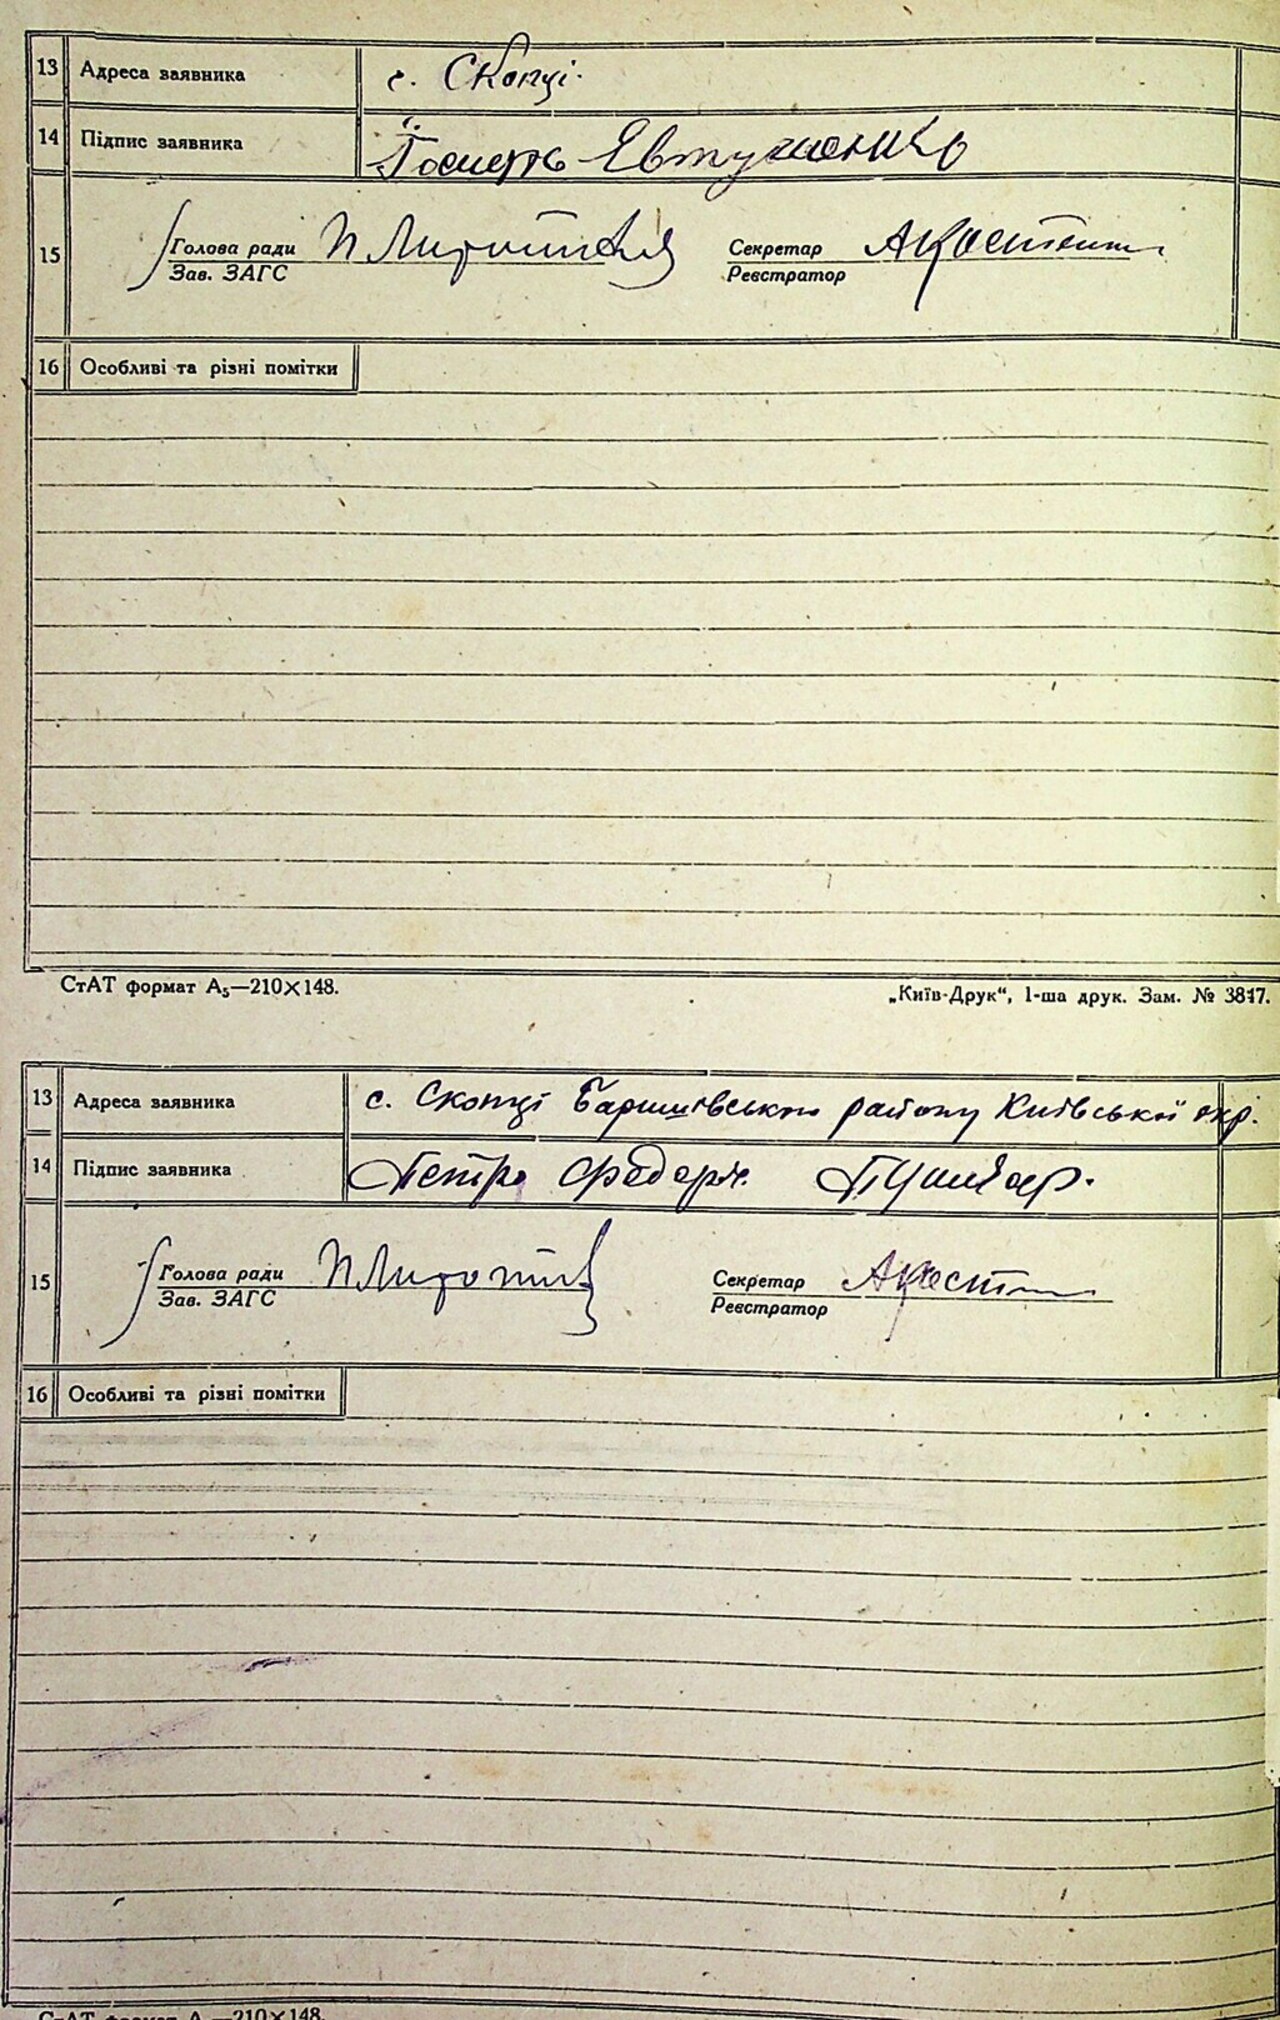 13 Адреса заявника с. Скопці.
14 Підпис заявника Євтушенко
15 Голова ради Секретар АКостенко
Зав. ЗАГС Реєстратор
16 Особливі та різні помітки
СтАТ формат А5—210×148. „Київ-Друк“, 1-ша друк. Зам. № 3817.
13 Адреса заявника с. Скопці Баришівського району Київської окр.
14 Підпис заявника Петро Федоріч. Пушкар.
15 Голова ради Секретар АКост
Зав. ЗАГС Реєстратор
16 Особливі та різні помітки
СтАТ формат А —210×148.